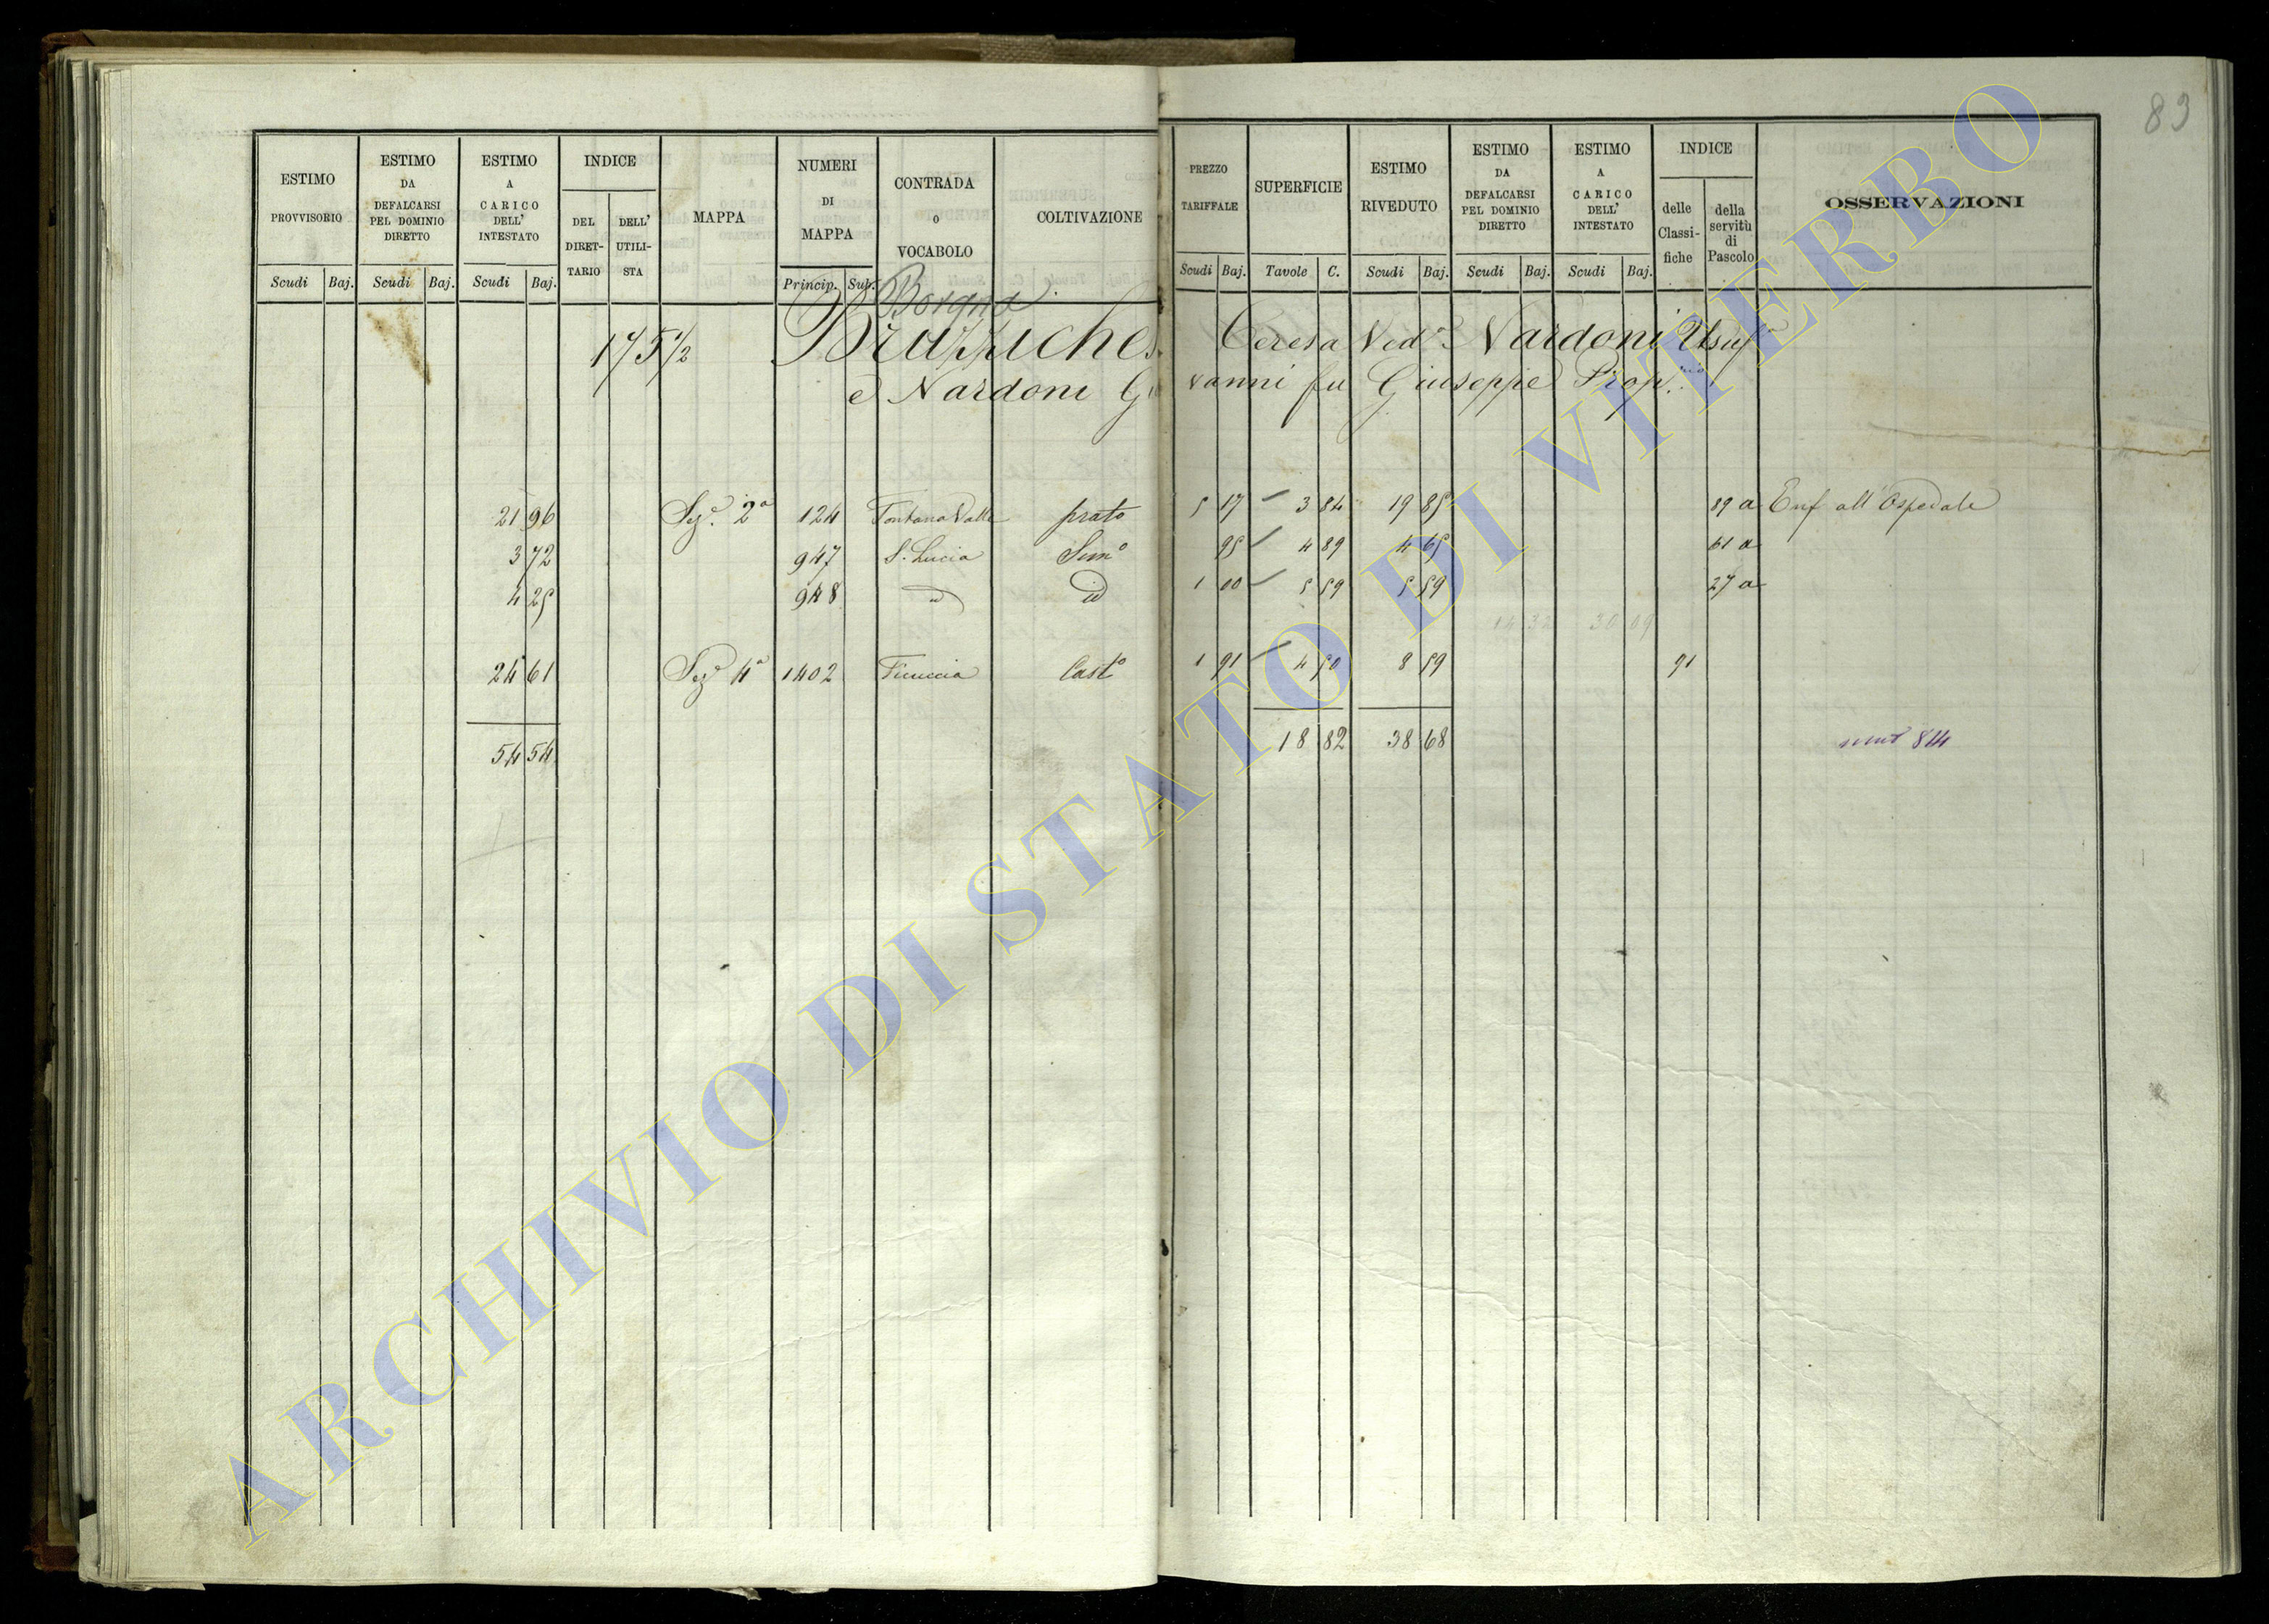 83
ESTIMO PROVVISORIO Scudi Baj.
ESTIMO DA DEFALCARSI PEL DOMINIO DIRETTO Scudi Baj.
ESTIMO A CARICO DELL' INTESTATO Scudi Baj.
INDICE DEL DIRETTARIO DELL' UTILISTA
MAPPA
NUMERI DI MAPPA Princip. Sub.
CONTRADA O VOCABOLO
COLTIVAZIONE
PREZZO TARIFFALE Scudi Baj.
SUPERFICIE Tavole C.
ESTIMO RIVEDUTO Scudi Baj.
ESTIMO DA DEFALCARSI PEL DOMINIO DIRETTO Scudi Baj.
ESTIMO A CARICO DELL' INTESTATO Scudi Baj.
INDICE delle Classifiche della servitù di Pascolo
OSSERVAZIONI
Borgna
175 1/2 Teresa Ved.a Nardoni Usuf.a
e Nardoni Giovanni fu Giuseppe Prop.rio
21 96 Sez.e 2a 124 Fontana Valle prato 5 17 3 84 19 85 89 a Enf all'Ospedale
3 72 947 S. Lucia Sem.o 95 4 89 4 65 61 a
4 25 948 id id 1 00 5 59 5 59 27 a
14 32 30 09
24 61 Sez.e 4a 1402 Ficuccia Cast.o 1 91 4 50 8 59 91
54 54 18 82 38 68 814
ARCHIVIO DI STATO DI VITERBO